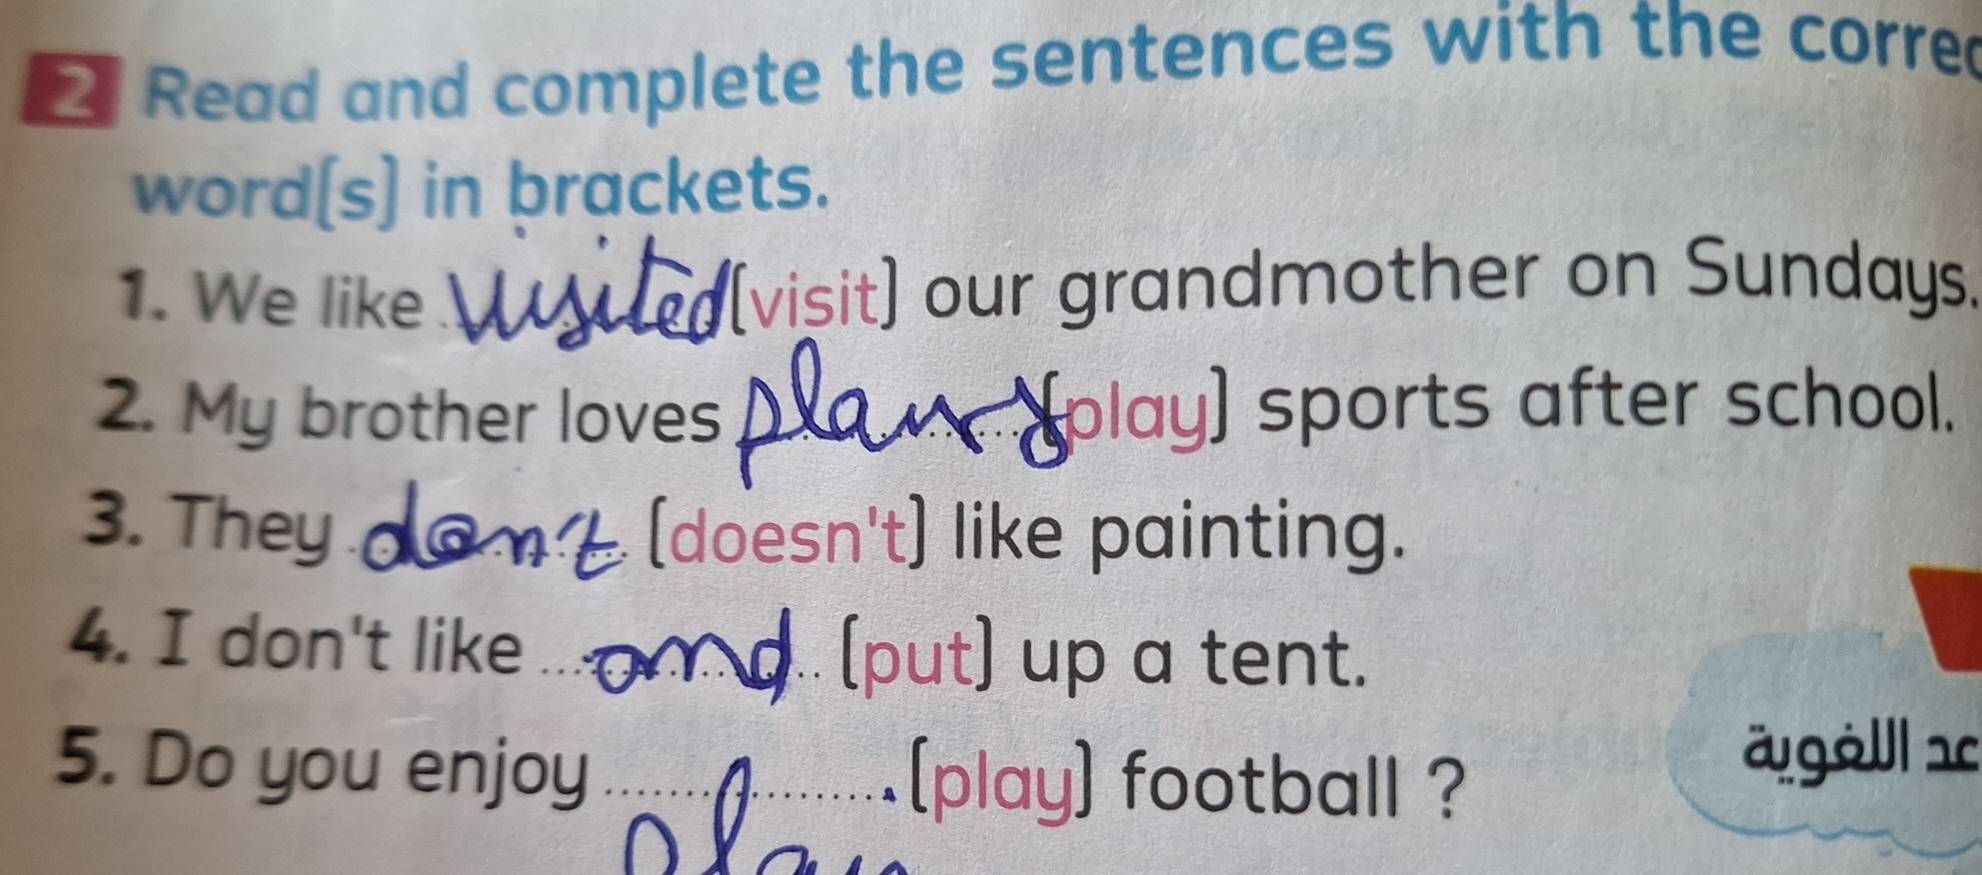 2 Read and complete the sentences with the correc
word(s) in brackets.
1. We like visited (visit) our grandmother on Sundays.
2. My brother loves (play) sports after school.
3. They don't (doesn't) like painting.
4. I don't like ......... (put) up a tent.
5. Do you enjoy ......... (play) football ?
عد اللغوية